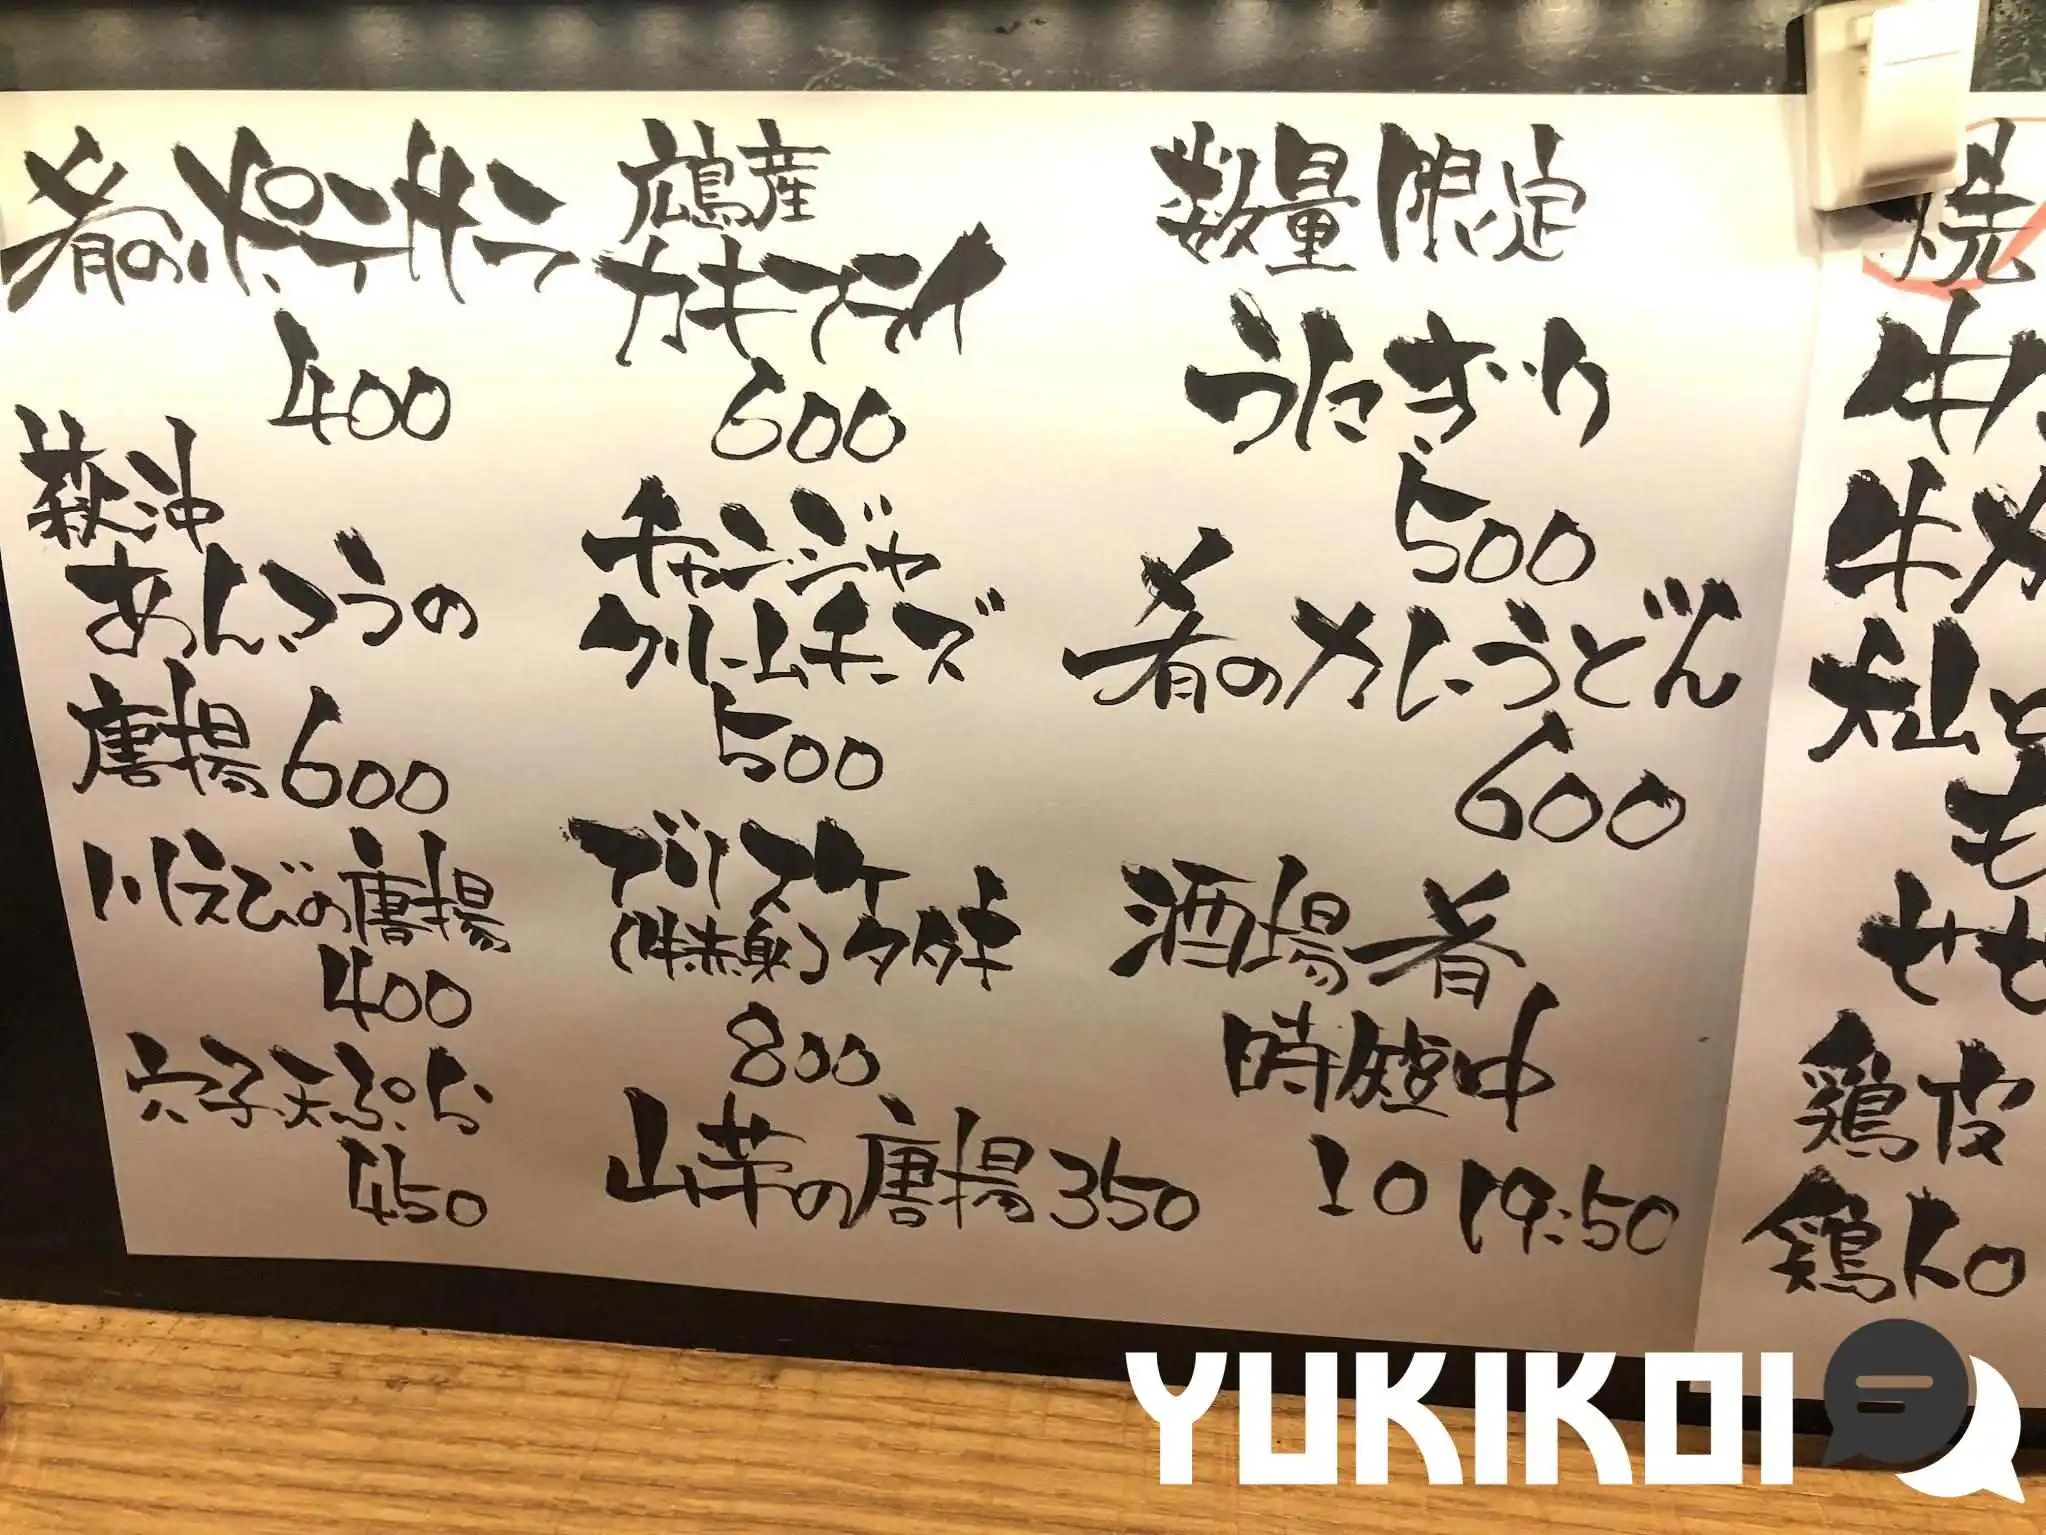 肴のポテサラ
400
萩沖
あんこうの
唐揚600
川えびの唐揚
400
穴子天ぷら
450
広島産
カキフライ
600
チャンジャ
クリームチーズ
500
ブリスケ
(牛赤身)タタキ
800
山芋の唐揚350
数量限定
うにぎり
500
肴のカレーうどん
600
酒場肴
時短中
LO 19:50
焼
牛
牛
大山と
も
せせ
鶏皮
鶏トロ
YUKIKOI